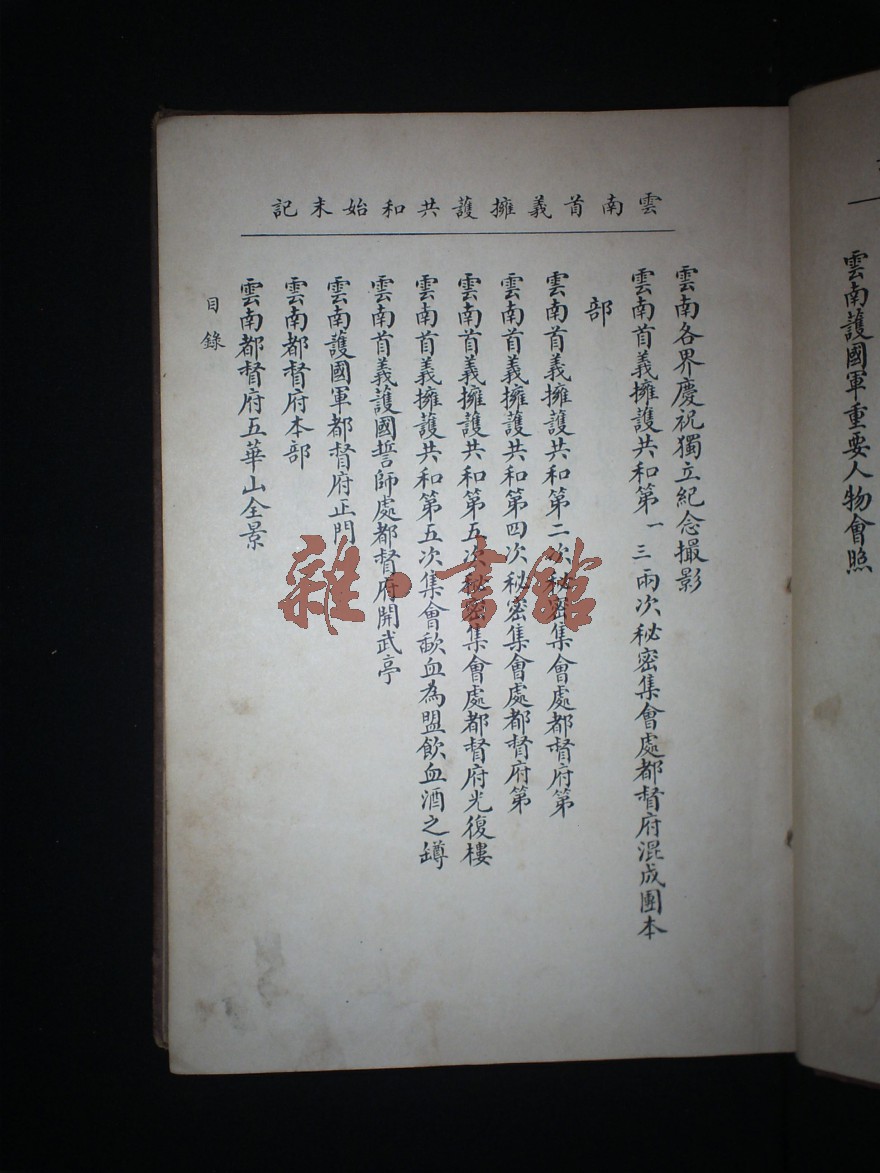 雲南首義擁護共和始末記
雲南護國軍重要人物會照
雲南各界慶祝獨立紀念撮影
雲南首義擁護共和第一三兩次秘密集會處都督府混成團本
部
雲南首義擁護共和第二次秘密集會處都督府第
雲南首義擁護共和第四次秘密集會處都督府第
雲南首義擁護共和第五次秘密集會處都督府光復樓
雲南首義擁護共和第五次集會歃血為盟飲血酒之罇
雲南首義護國誓師處都督府開武亭
雲南護國軍都督府正門
雲南都督府本部
雲南都督府五華山全景
目錄
雜·書館